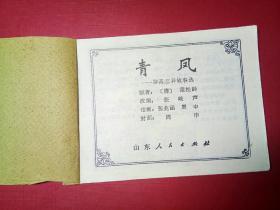 青凤
——聊斋志异故事选
原著：〔清〕蒲松龄
改编：张岐声
绘画：张光 里中
封面：周中
山东人民出版社